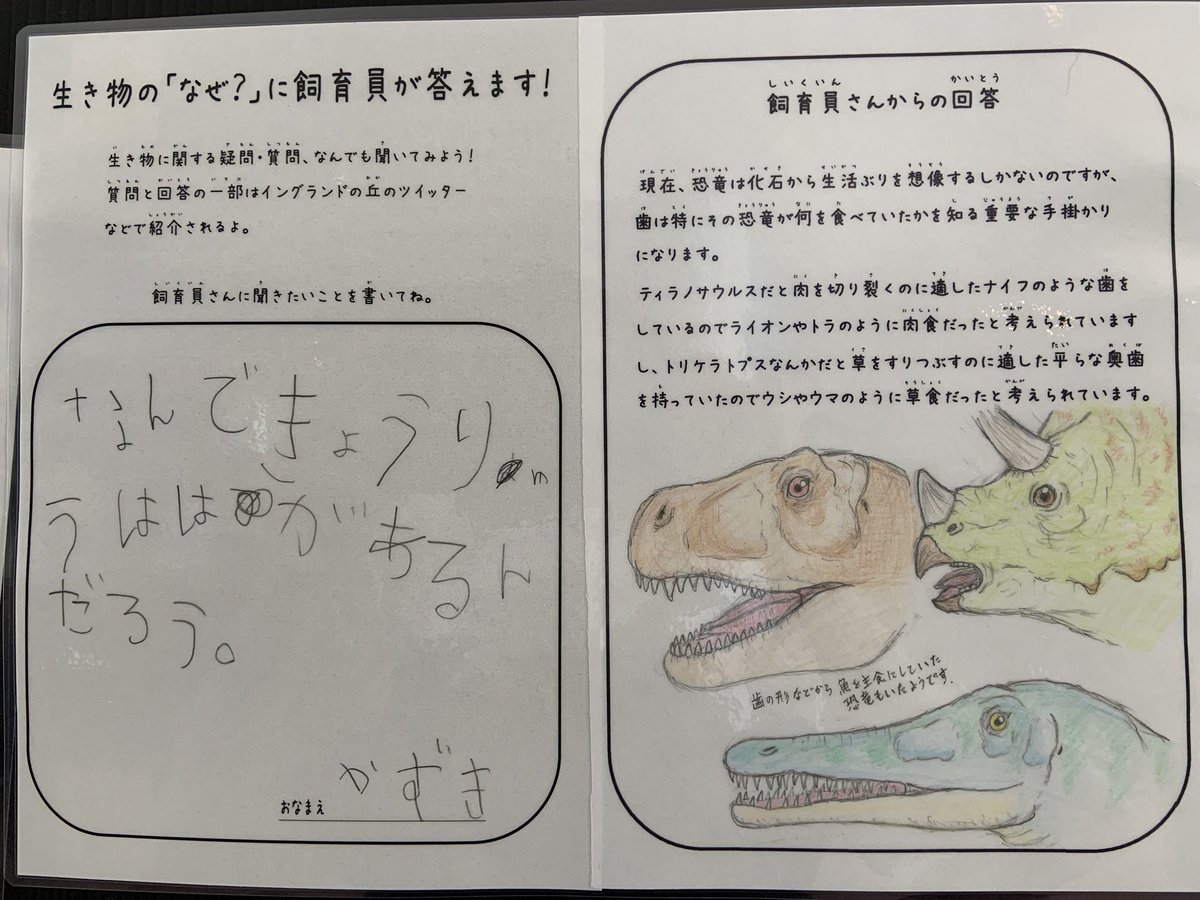 生き物の「なぜ?」に飼育員が答えます!
生き物に関する疑問・質問、なんでも聞いてみよう!
質問と回答の一部はイングランドの丘のツイッター
などで紹介されるよ。
飼育員さんに聞きたいことを書いてね。
なんできょうり
うははがあるん
だろう。
おなまえ かずき
飼育員さんからの回答
現在、恐竜は化石から生活ぶりを想像するしかないのですが、
歯は特にその恐竜が何を食べていたかを知る重要な手掛かり
になります。
ティラノサウルスだと肉を切り裂くのに適したナイフのような歯を
しているのでライオンやトラのように肉食だったと考えられています
し、トリケラトプスなんかだと草をすりつぶすのに適した平らな奥歯
を持っていたのでウシやウマのように草食だったと考えられています。
歯の形などから魚を主食にしていた
恐竜もいたようです.